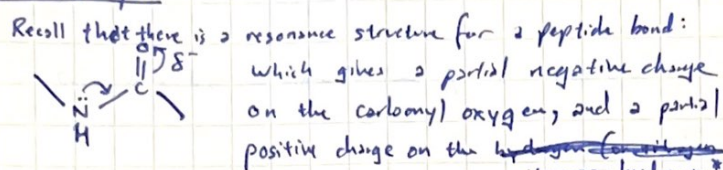 Recall that there is a resonance structure for a peptide bond:
O δ-
which gives a partial negative charge
N C
on the carbonyl oxygen, and a partial
H
positive charge on the hydrogen (on nitrogen *